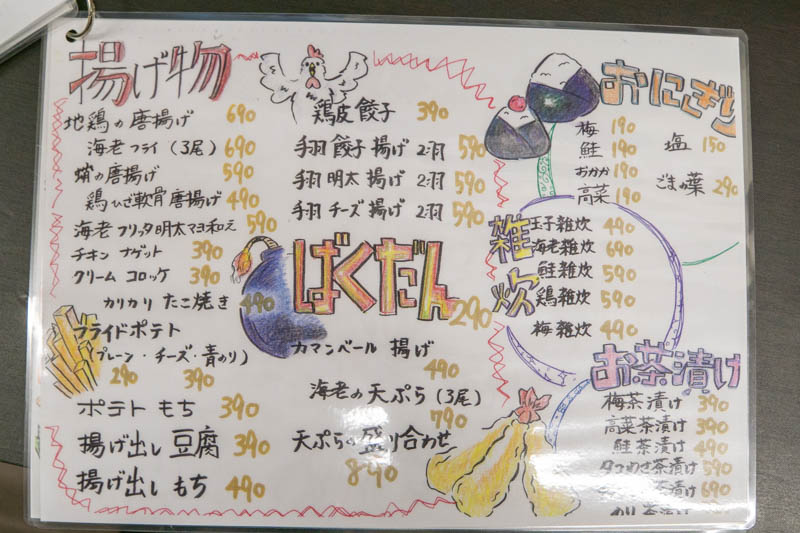 揚げ物
地鶏の唐揚げ 690
海老フライ(3尾) 690
蛸の唐揚げ 590
鶏ひざ軟骨唐揚げ 490
海老フリッタ明太マヨ和え 590
チキンナゲット 390
クリームコロッケ 390
カリカリたこ焼き 490
フライドポテト
(プレーン・チーズ・青のり)
290 390
ポテトもち 390
揚げ出し豆腐 390
揚げ出しもち 490
鶏皮餃子 390
手羽餃子揚げ 2羽 590
手羽明太揚げ 2羽 590
手羽チーズ揚げ 2羽 590
ばくだん 290
カマンベール揚げ
490
海老の天ぷら(3尾)
790
天ぷらの盛り合わせ
890
おにぎり
梅 190
鮭 190
おかか 190
高菜 190
塩 150
ごまの葉 290
雑炊
玉子雑炊 490
海老雑炊 690
鮭雑炊 590
鶏雑炊 590
梅雑炊 490
お茶漬け
梅茶漬け 390
高菜茶漬け 390
鮭茶漬け 490
タコわさ茶漬け 590
茶漬け 690
茶漬け